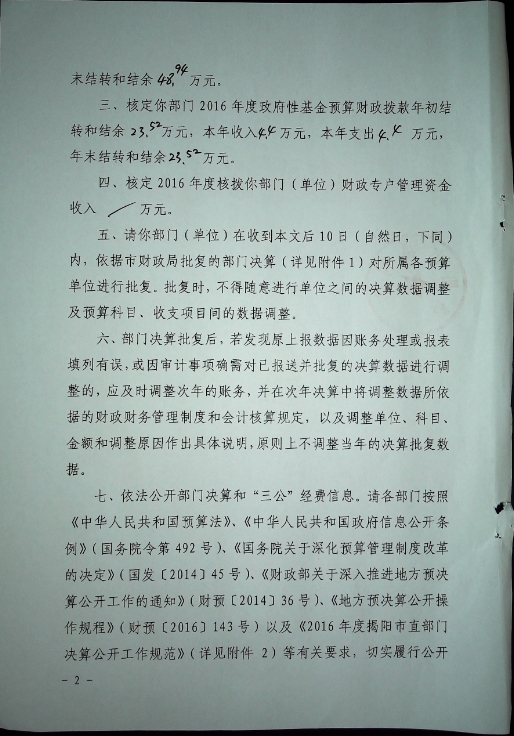 末结转和结余48.94万元。
三、核定你部门2016年度政府性基金预算财政拨款年初结
转和结余23.52万元，本年收入4.4万元，本年支出4.4 万元，
年末结转和结余23.52万元。
四、核定2016年度核拨你部门（单位）财政专户管理资金
收入 ／ 万元。
五、请你部门（单位）在收到本文后10日（自然日，下同）
内，依据市财政局批复的部门决算（详见附件1）对所属各预算
单位进行批复。批复时，不得随意进行单位之间的决算数据调整
及预算科目、收支项目间的数据调整。
六、部门决算批复后，若发现原上报数据因账务处理或报表
填列有误，或因审计事项确需对已报送并批复的决算数据进行调
整的，应及时调整次年的账务，并在次年决算中将调整数据所依
据的财政财务管理制度和会计核算规定，以及调整单位、科目、
金额和调整原因作出具体说明，原则上不调整当年的决算批复数
据。
七、依法公开部门决算和“三公”经费信息。请各部门按照
《中华人民共和国预算法》、《中华人民共和国政府信息公开条
例》（国务院令第492号）、《国务院关于深化预算管理制度改革
的决定》（国发〔2014〕45号）、《财政部关于深入推进地方预决
算公开工作的通知》（财预〔2014〕36号）、《地方预决算公开操
作规程》（财预〔2016〕143号）以及《2016年度揭阳市直部门
决算公开工作规范》（详见附件 2）等有关要求，切实履行公开
- 2 -